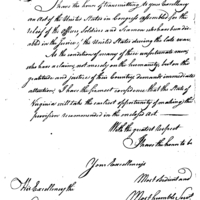 I have the honor of transmitting to your Excellency
an Act of the United States in Congress assembled for the
relief of the Officers, Soldiers and Seamen who have been dis-
abled in the service of the United States during the late war.
As the condition of many of these unfortunate men,
who have a claim not merely on the humanity but on the
gratitude and justice of their Country demands immediate
attention; I have the firmest confidence that the State of
Virginia will take the earliest opportunity of making the
provision recommended in the enclosed Act.
With the greatest Respect
I have the honor to be
Your Excellency's
His Excellency the
Most obedient and
Most humble Servt.